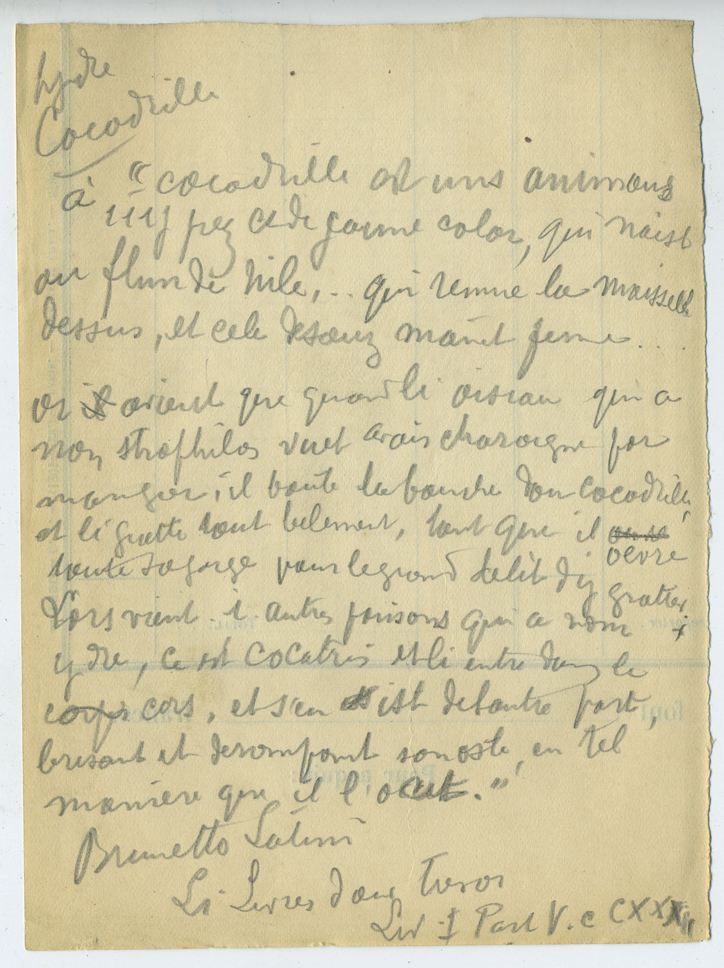 hydre
Cocodrille
à "cocodrille est uns animaus
IIIJ piez et de jaune color, qui naist
ou flun de Nile, .. qui remue la maisselle
dessus, et cele desouz maint ferme ...
or avient que quand li oiseau qui a
non strophilos vuet avoir charoigne por
mangier, il boute la bouche dou cocodrille
et li gratte tout belement, tant que il
oevre
toute sa gorge pour le grand delit dy gratter
Lors vient i autres poissons qui a nom
ydre, ce est cocatris et li entre dans le
cors, et s'en ist de l'autre part,
brisant et derompant son oste, en tel
manière que il l'ocit."
Brunetto Latini
Li Livres dou Tresor
Liv. I Part V. c CXXXII